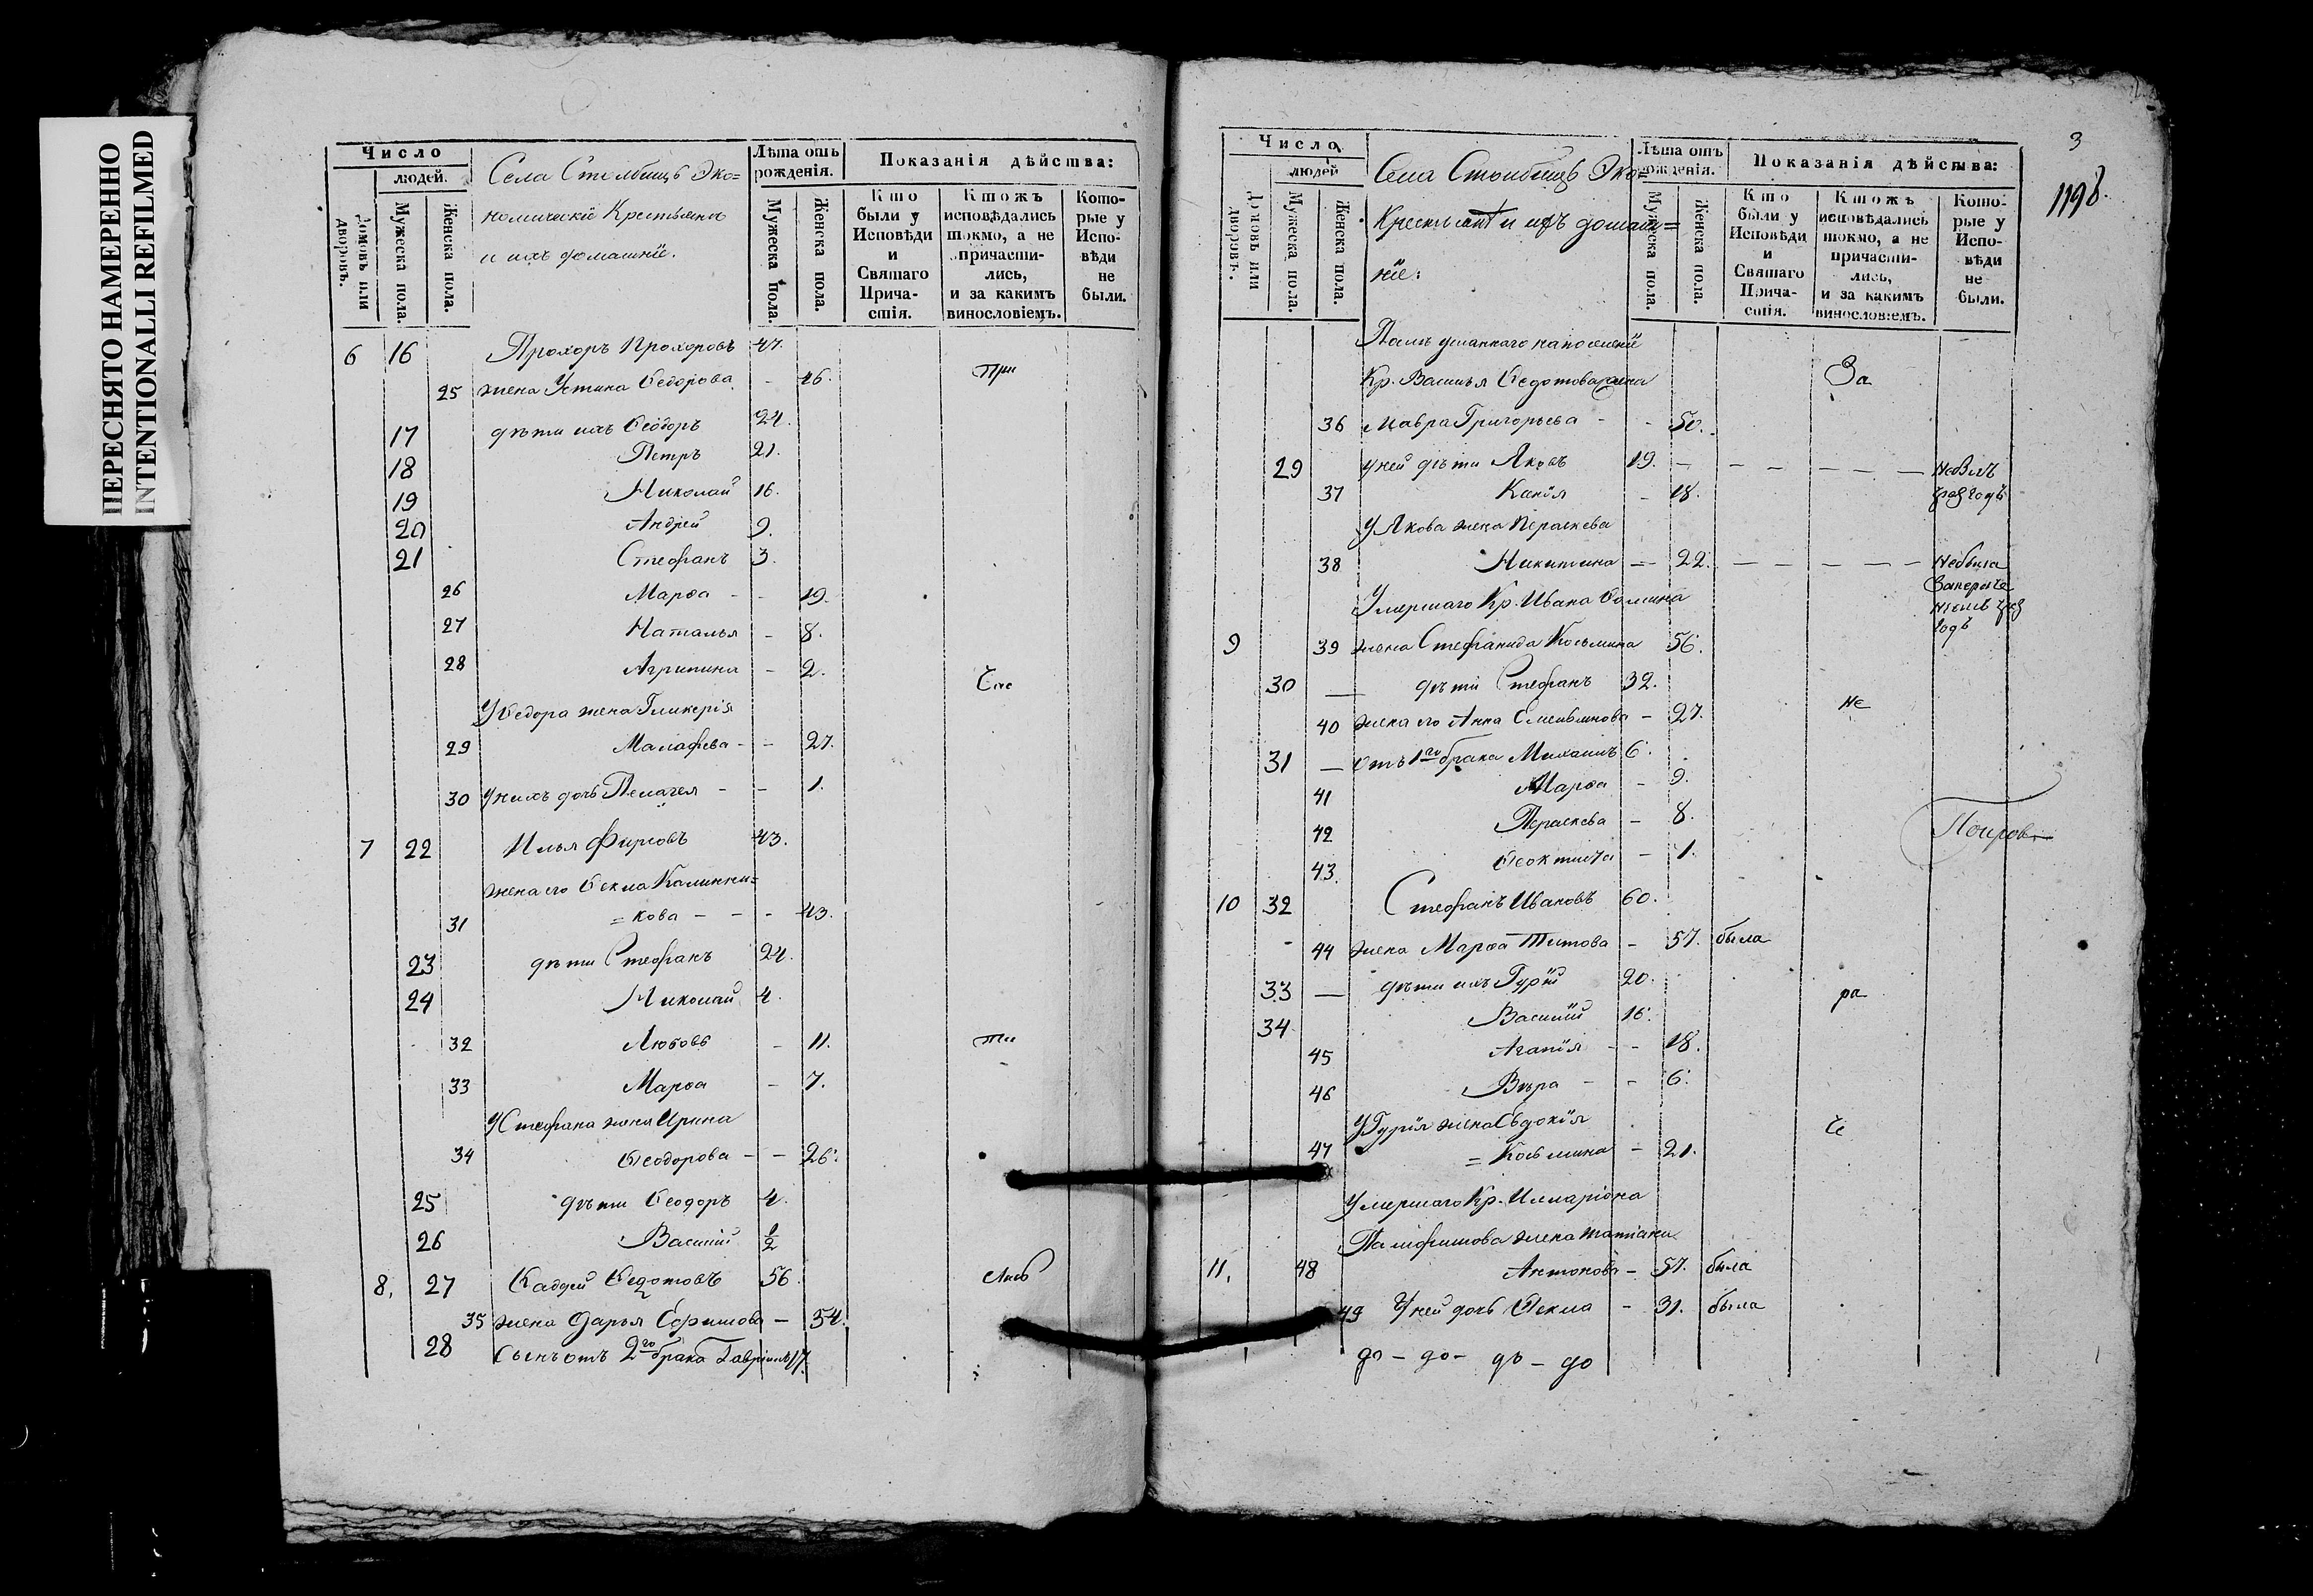 ПЕРЕСНЯТО НАМЕРЕННО
INTENTIONALLI REFILMED
Число
людей.
Домовъ или дворовъ.
Мужеска пола.
Женска пола.
Села Столбищъ Эко=
номическіе Крестьяне
и ихъ домашніе.
Лѣта отъ рожденія.
Мужеска пола.
Женска пола.
Показанія дѣйства:
Кто были у Исповѣди и Святаго Причастія.
Ктожъ исповѣдались токмо, а не причастились, и за какимъ винословіемъ.
Которые у Исповѣди не были.
6 16 Прохоръ Прохоровъ 47.
25 жена Устина Ѳедорова - 46. При
17 дѣти ихъ Ѳеодоръ 24.
18 Петръ 21.
19 Николай 16.
20 Андрей 9.
21 Стефанъ 3.
26 Марѳа - - 19.
27 Наталья - 8.
28 Агрипина - 2.
У Ѳедора жена Гликерія
29 Малафева - - 27.
30 У нихъ дочь Пелагея - - 1.
7 22 Илья Фирсовъ 43.
жена его Ѳекла Калинни=
31 =кова - - - 43.
23 дѣти Стефанъ 24.
24 Николай 4.
32 Любовь - 11.
33 Марѳа - 7.
У Стефана жена Ирина
34 Ѳеодорова - - 26.
25 дѣти Ѳеодоръ 4.
26 Василій ½
8. 27 Ѳаддей Ѳедотовъ 56. лись
35 жена Дарья Ефимова - 54.
28 Сынъ отъ 2го брака Гавріилъ 17.
3
1198.
Число
людей
Домовъ или дворовъ.
Мужеска пола.
Женска пола.
Села Столбищъ Эко=
Крестьяне и ихъ домаш=
ніе:
Лѣта отъ рожденія.
Мужеска пола.
Женска пола.
Показанія дѣйства:
Кто были у Исповѣди и Святаго Причастія.
Ктожъ исповѣдались токмо, а не причастились, и за какимъ винословіемъ.
Которые у Исповѣди не были.
Кр. Василья Ѳедотова жена За
36 Мавра Григорьева - - 50.
29 У ней дѣти Яковъ 19. - - - - - - Небылъ
37 - 18. годъ
У Якова жена Параскева
38 Никитина - 22. - - - - - Небыла
Умершаго Кр. Ивана Ѳомина
годъ
9 39 жена Стефанида Косьмина 56.
30 — дѣти Стефанъ 32.
40 жена его Анна Емельянова - 27. не
31 — Отъ 1го брака Михаилъ 6.
41 Марѳа - 9.
42 Параскева - 8.
43. Ѳеоктиста - 1.
10 32 Стефанъ Ивановъ 60.
44 жена Марѳа Титова - 57. была
33 — дѣти ихъ Гурій 20. ра
34 Василій 16.
45 Агапія - - 18.
46 Вѣра - - 6.
У Гурія жена Евдокія
47 = Косьмина - 21.
Умершаго Кр. Иларіона
жена Татіана
11. 48 Антонова - 57. была
49 У ней дочь Ѳекла - 31. была
до - до - до - до